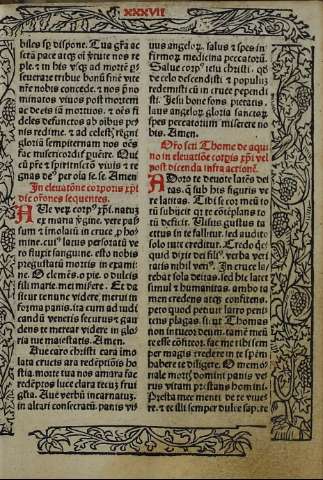 XXXVII
biles sp dispone. Tua gr̄a ac
scta pace atq; oī v̄tute nos re
ple. et in his vsq; ad mortē p
seuerare tribue bonū finē vite
nr̄e nobis concede. et nos p̄no
minatos viuos post mortem
ac de eis iā mortuos, et oēs fi
deles defunctos ab oībus pe
nis redime. et ad celestē regni
gloriā sempiternam nos oēs
fac misericordit̄ puēire. Qui
cū p̄re et spiritusctō viuis et re
gnas de9 per oīa se. se. Amen
In eleuatōne corporis xp̄i
dic orōnes sequentes.
Aue vep corp9 xp̄i. natuz
ex maria v̄gine. vere pas
sum īmolatū in cruce p ho
mine. cui9 latus perforatū ve
ro fluxit sanguine. esto nobis
pregustatū mortis in exami
ne. O clemēs. o pie. o dulcis
fili marie. mei misere. Et da
sicut te nunc videre, merui in
forma panis. ita cum ad iudi
candū veneris securus, gau
dens te merear videre in glo
ria tue maiestatis. Amen.
Aue caro christi cara īmo
lata crucis ara redēptiōis ho
stia. morte tua nos amara fac
redēptos luce clara tecuz frui
gloria. Aue verbū incarnatuz,
in altari consecratū. panis viv9
uus angelorz. salus et spes in
firmorz medicina peccatorū.
Salue corp9 iesu christi. q̄
de celo descendisti et populuz
redemisti cū in cruce pependi
sti. Jesu bone fons pietatis.
laus angelorz gloria sanctorz
spes peccatorum miserere no
bis. Amen.
Orō scti Thome de aqui
no in eleuatiōe corpis xp̄i vel
post dicenda infra actionē.
Adoro te deuote latēs dei
tas. q̄ sub his figuris ve
re latitas. Tibi se cor meū to
tū subiicit qr te cōtēplans to
tū deficit. Visus gustus ta
ctus in te fallitur. sed auditu
solo tute creditur. Credo qc
quid dixit dei fili9. verba veri
tatis nihil ver9. In cruce la
tebat sola deitas. sed hic latet
simul et humanitas. ambo ta
men credens atq; confitens.
peto quod petiuit latro peni
tens. plagas sicut Thomas
non intueor. deum. tamē meū
te esse cōfiteor. fac me tibi sem
per magis credere in te spem
habere te diligere. O memo
riale mortis domini panis ve
rus vitam prestans homini.
Presta mee menti de te viue
re. et te illi semper dulce sape.re